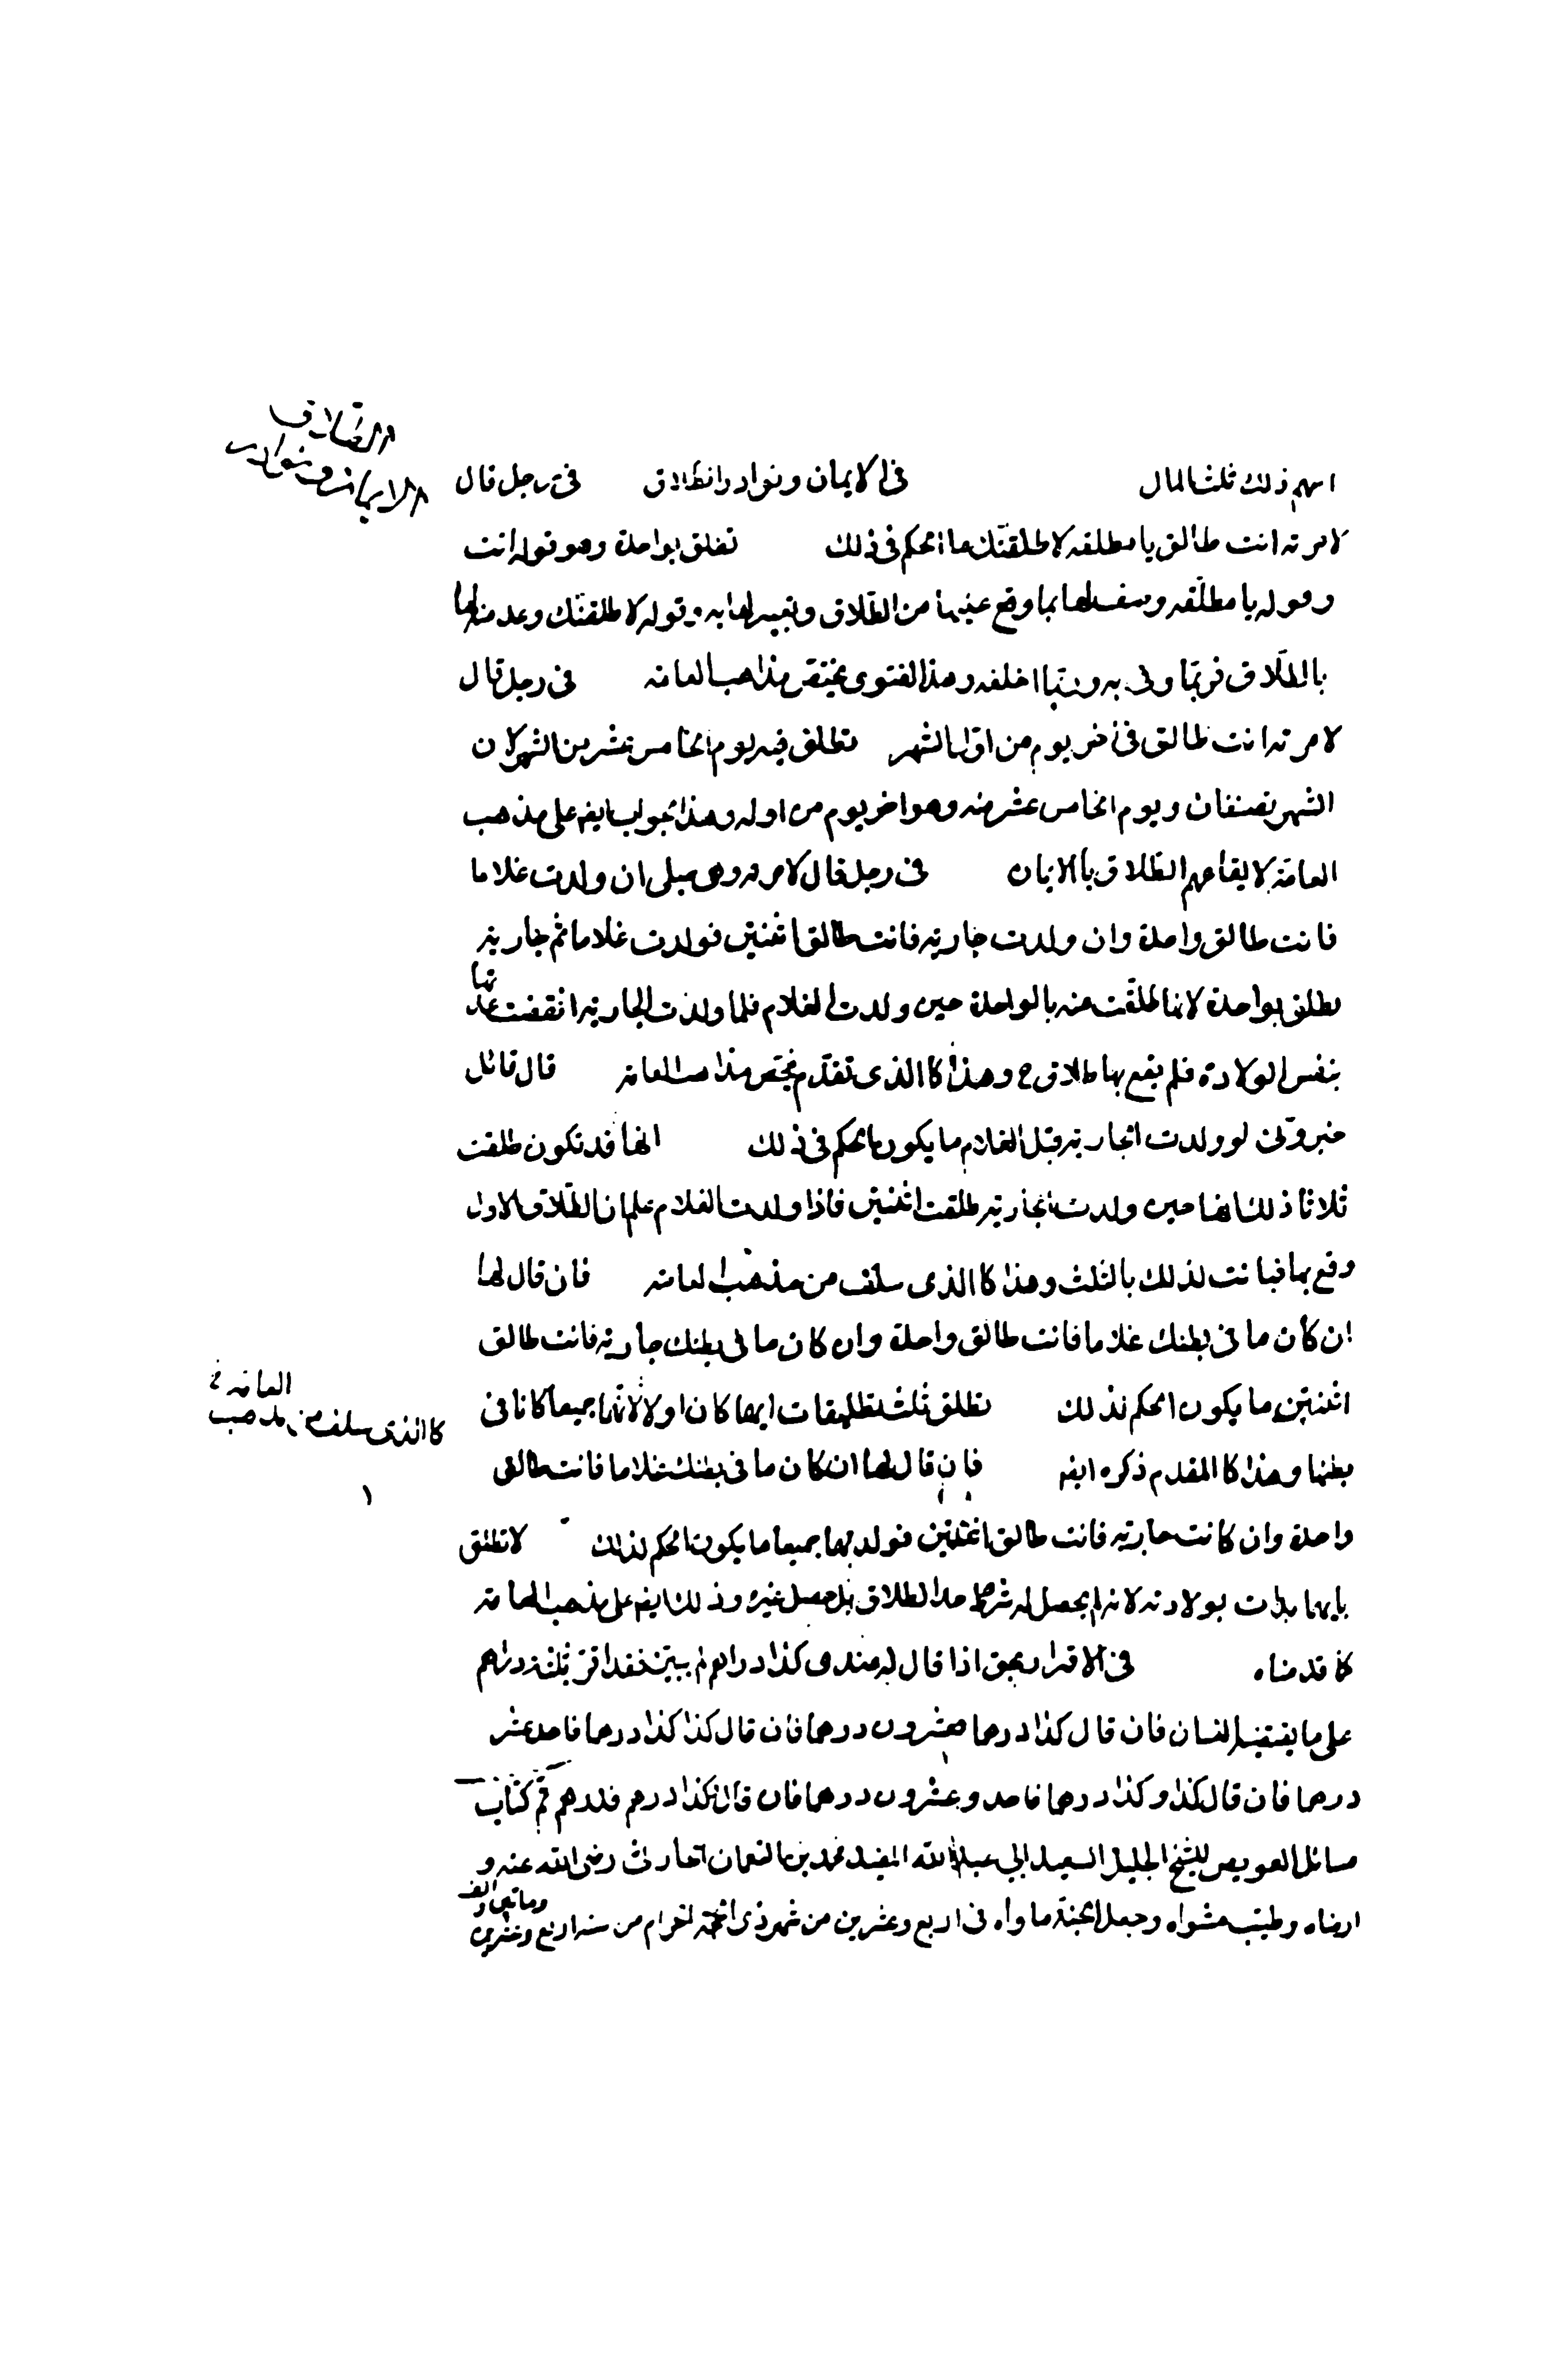 اسهم ذلك ثلث المال في الايمان ونوادر الطلاق في رجل قال
لامرته انت طالق يا مطلقه لاطلقنّك ما الحكم في ذلك تطلق بواحدة وهو قوله انت
وقوله يا مطلّقه وصف لها بما وقع عليها من الطّلاق وتعيير لها به وقوله لاطلقنّك وعد منه لها
بالطّلاق فربّما وفى به وربّما اخلفه وهذا الفتوى يختصّ بمذاهب العامه في رجل قال
لامرته انت طالق في آخر يوم من اوّل الشهر تطلق فيه يوم الخامس عشر من الشهر لان
الشهر نصفان ويوم الخامس عشر منه وهو اخر يوم من اوله وهذا الجواب ايضا على مذهب
العامّة لايقاعهم الطّلاق بالايمان في رجل قال لامرته وهي حبلى ان ولدت غلاما
فانت طالق واحدة وان ولدت جارية فانت طالق اثنتين فولدت غلاما ثم جارية
تطلق بواحدة لانها طلّقت منه بالواحدة حين ولدت الغلام فلما ولدت الجارية انقضت عدتها
بنفس الولادة فلم يقع بها طلاق ح وهذا كالذى تقدّم يختص بمذاهب العامه قال قائل
خبرونى لو ولدت الجارية قبل الغلام ما يكون الحكم في ذلك انها قد تكون طلقت
ثلاثا ذلك انها حين ولدت الجارية طلقت اثنتين فاذا ولدت الغلام علم ان الطّلاق الاول
وقع بها فبانت لذلك بالثلث وهذا كالذى سلف من مذهب العامه فان قال لها
ان كان ما في بطنك غلاما فانت طالق واحدة وان كان ما في بطنك جارية فانت طالق
اثنتين ما يكون الحكم لذلك تطلق ثلث تطليقات ايهما كان اولا لانّهما جميعا كانا في
بطنها وهذا كالمقدم ذكره ايضا فان قال لها ان كان ما في بطنك غلاما فانت طالق
واحدة وان كانت جارية فانت طالق اثنتين فولدتهما جميعا ما يكون الحكم لذلك لا تطلق
بايهما بدات بولادته لانه لم يحصل له شرط هذا الطلاق بل حصل غيره وذلك ايضا على مذهب العامه
كما قدمناه في الاقرار بحق اذا قال له عندى كذا دراهم لم يبيّن فقد اقرّ بثلثة دراهم
على ما يقتضيه اللسان فان قال كذا درهما فعشرون درهما فان قال كذا كذا درهما فاحد عشر
درهما فان قال كذا وكذا درهما فاحد وعشرون درهما فان قال كذا درهم فدرهم تمّ كتاب
مسائل العويص للشيخ الجليل السعيد ابي عبد الله المفيد محمد بن النعمان الحارثى رضى الله عنه و
ارضاه وطيّب مثواه وجعل الجنة ماواه في اربع وعشرين من شهر ذى الحجة الحرام من سنه اربع وعشرين
وماتين والف
الطّلاق
الايمان ونوادر
كالذى سلف من مذهب
العامه